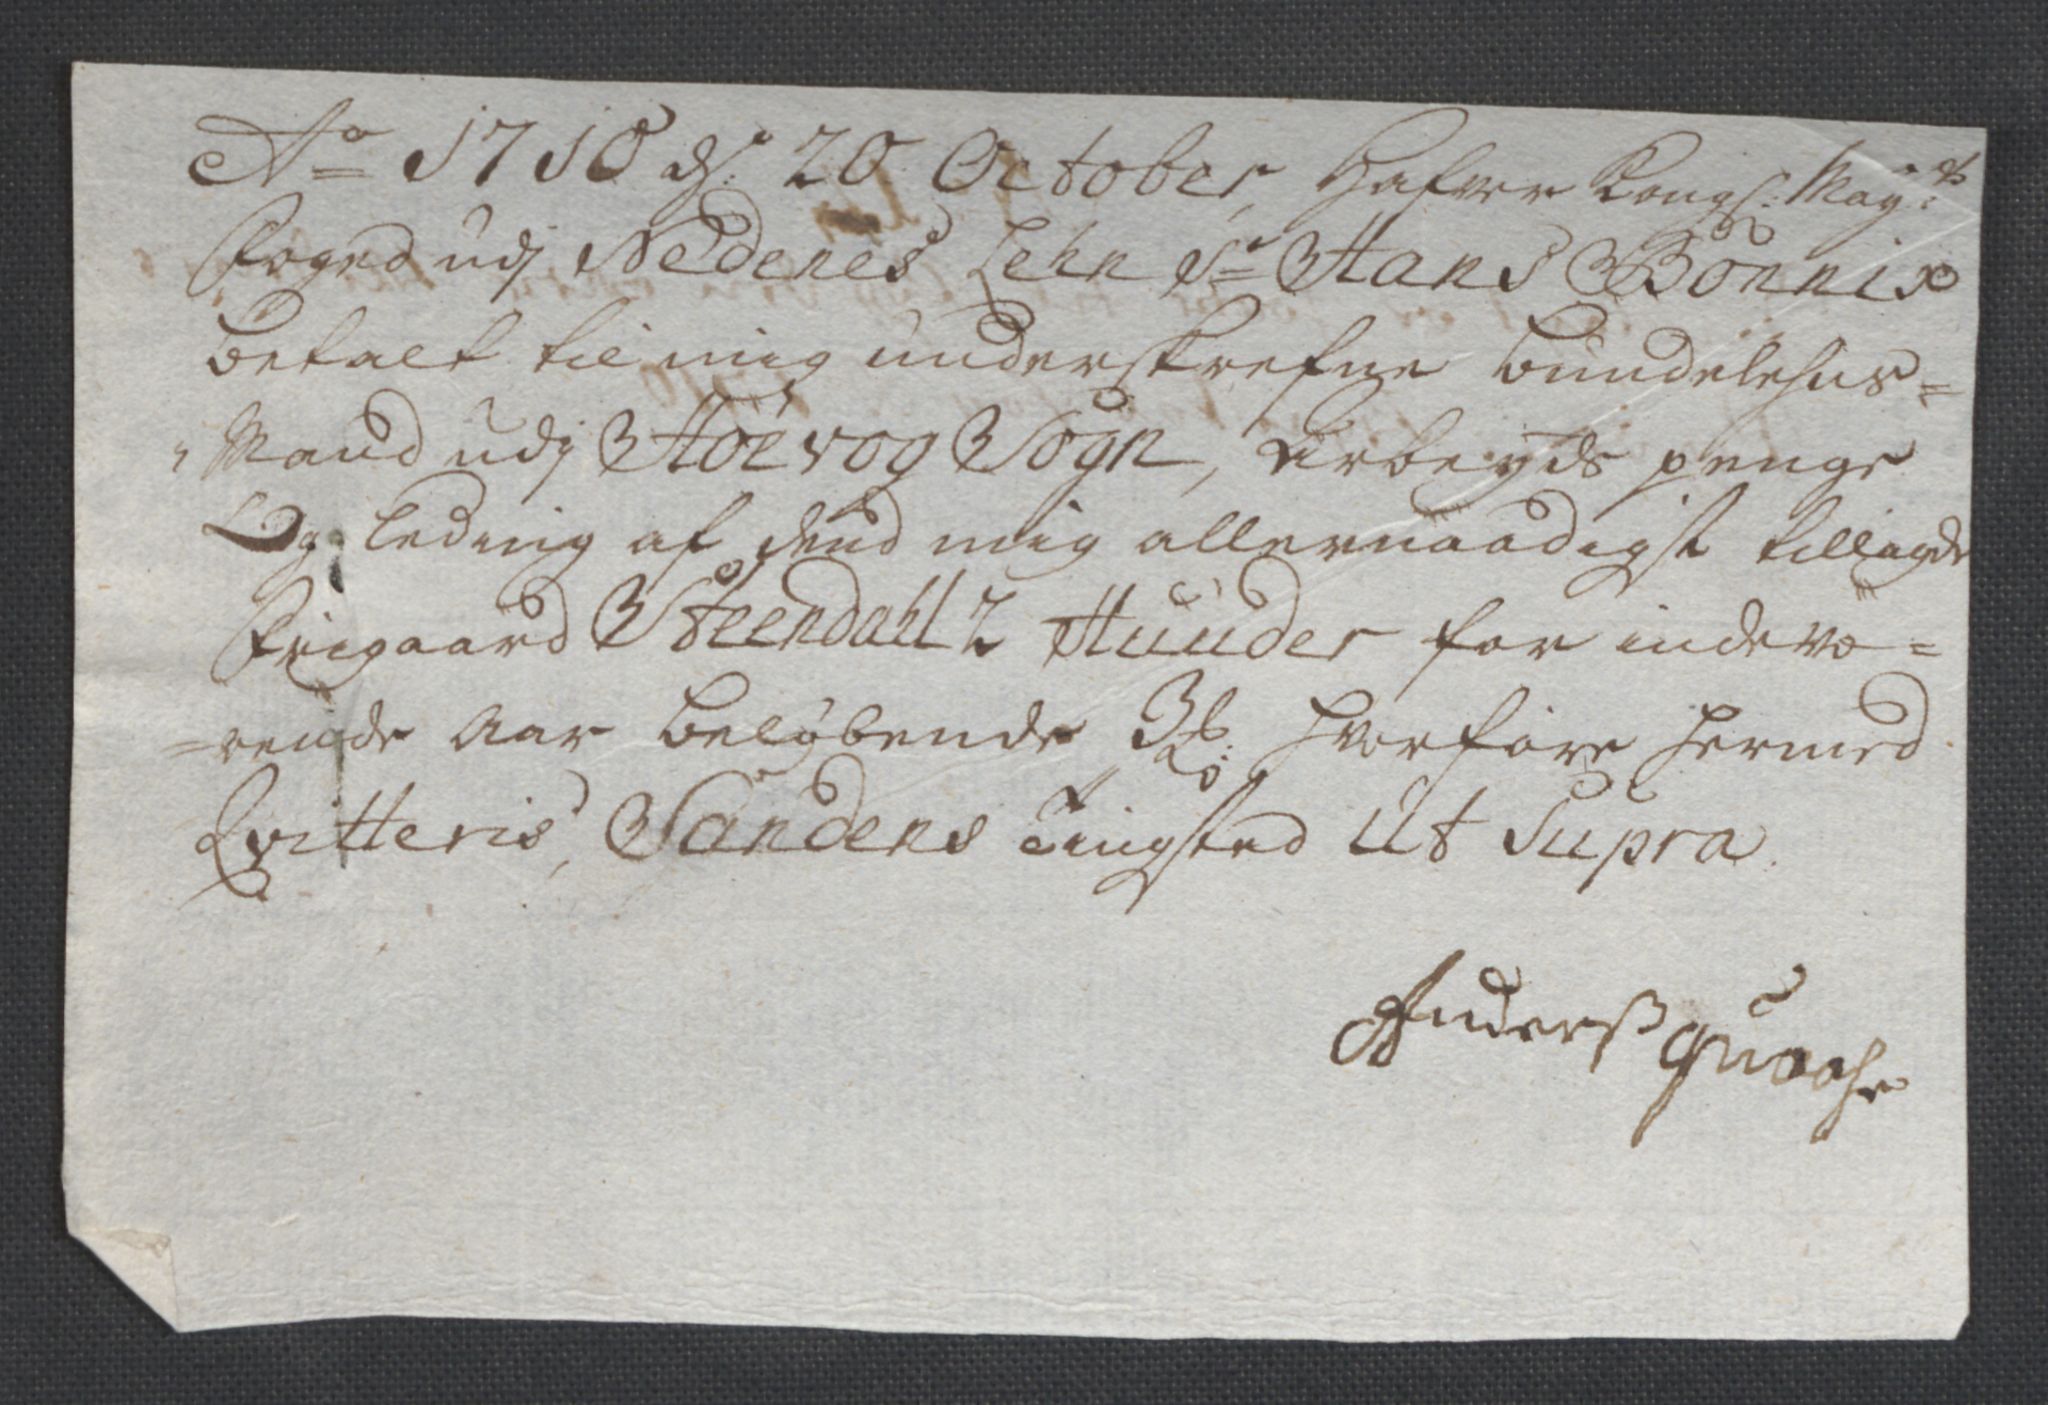 Ao 1710 d: 20 October, Hafver Kongl: May:ts
foged udj Nedenes Lehn Sr Hans Bönnix
betalt til mig underskrefne bundelehns=
Mand udj Höevog Sogn, Arbeyds penge
Og leding af dend mig allernaadigst tillagde
friegaard Steendahl 2 Huuder for indevæ=
=rende Aar beløbende 3 hvorfore hermed
Qvitteris, Sandens Tingsted Ut Supra.
Anderß